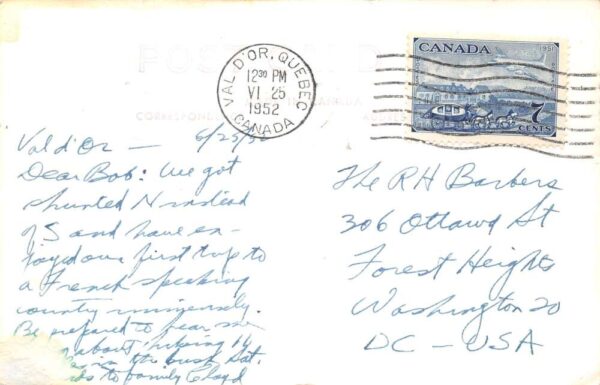 POST CARD
CORRESPONDENCE
MADE IN CANADA
ADDRESS
VAL D'OR, QUEBEC
12³⁰ PM
VI 25
1952
CANADA
CANADA
1951
7
CENTS
Val d'Or — 6/25/52
Dear Bob: We got
shunted N instead
of S and have en-
joyed our first trip to
a French speaking
country immensely.
Be prepared to hear
about helping 14
in the bush Sat.
to family Lloyd
The RH Barbers
306 Ottawa St
Forest Heights
Washington 20
DC - USA